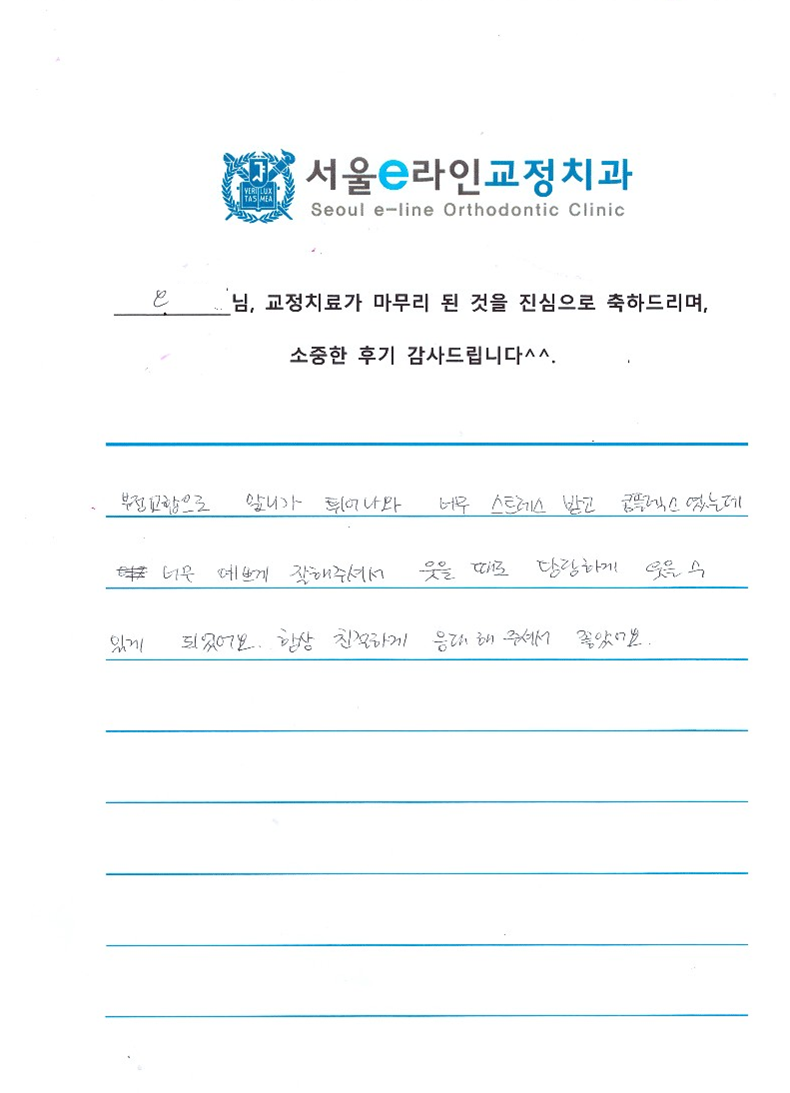 서울e라인교정치과
VERI LUX
TAS MEA
Seoul e-line Orthodontic Clinic
님, 교정치료가 마무리 된 것을 진심으로 축하드리며,
소중한 후기 감사드립니다^^.
부정교합으로 앞니가 튀어나와 너무 스트레스 받고 콤플렉스였는데
너무 예쁘게 잘해주셔서 웃을 때도 당당하게 웃을 수
있게 되었어요. 항상 친절하게 응대해 주셔서 좋았어요.